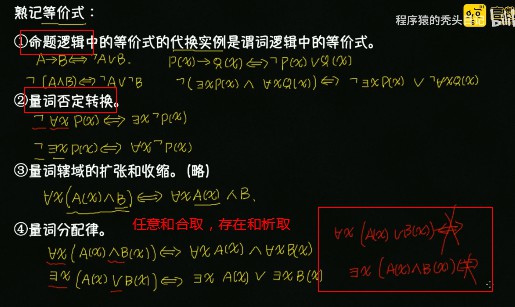 程序猿的秃头
熟记等价式：
①命题逻辑中的等价式的代换实例是谓词逻辑中的等价式。
A→B⇔¬A∨B. P(x)→Q(x)⇔¬P(x)∨Q(x)
¬(A∧B)⇔¬A∨¬B ¬(∃xP(x) ∧ ∀xQ(x))⇔¬∃xP(x) ∨ ¬∀xQ(x)
②量词否定转换。
¬∀xP(x)⇔∃x¬P(x)
¬∃xP(x)⇔∀x¬P(x)
③量词辖域的扩张和收缩。(略)
∀x(A(x)∧B)⇔∀xA(x)∧B.
④量词分配律。 任意和合取，存在和析取
∀x(A(x)∧B(x))⇔∀xA(x)∧∀xB(x)
∃x(A(x)∨B(x))⇔∃xA(x)∨∃xB(x)
∀x(A(x)∨B(x))⇔
∃x(A(x)∧B(x))⇔